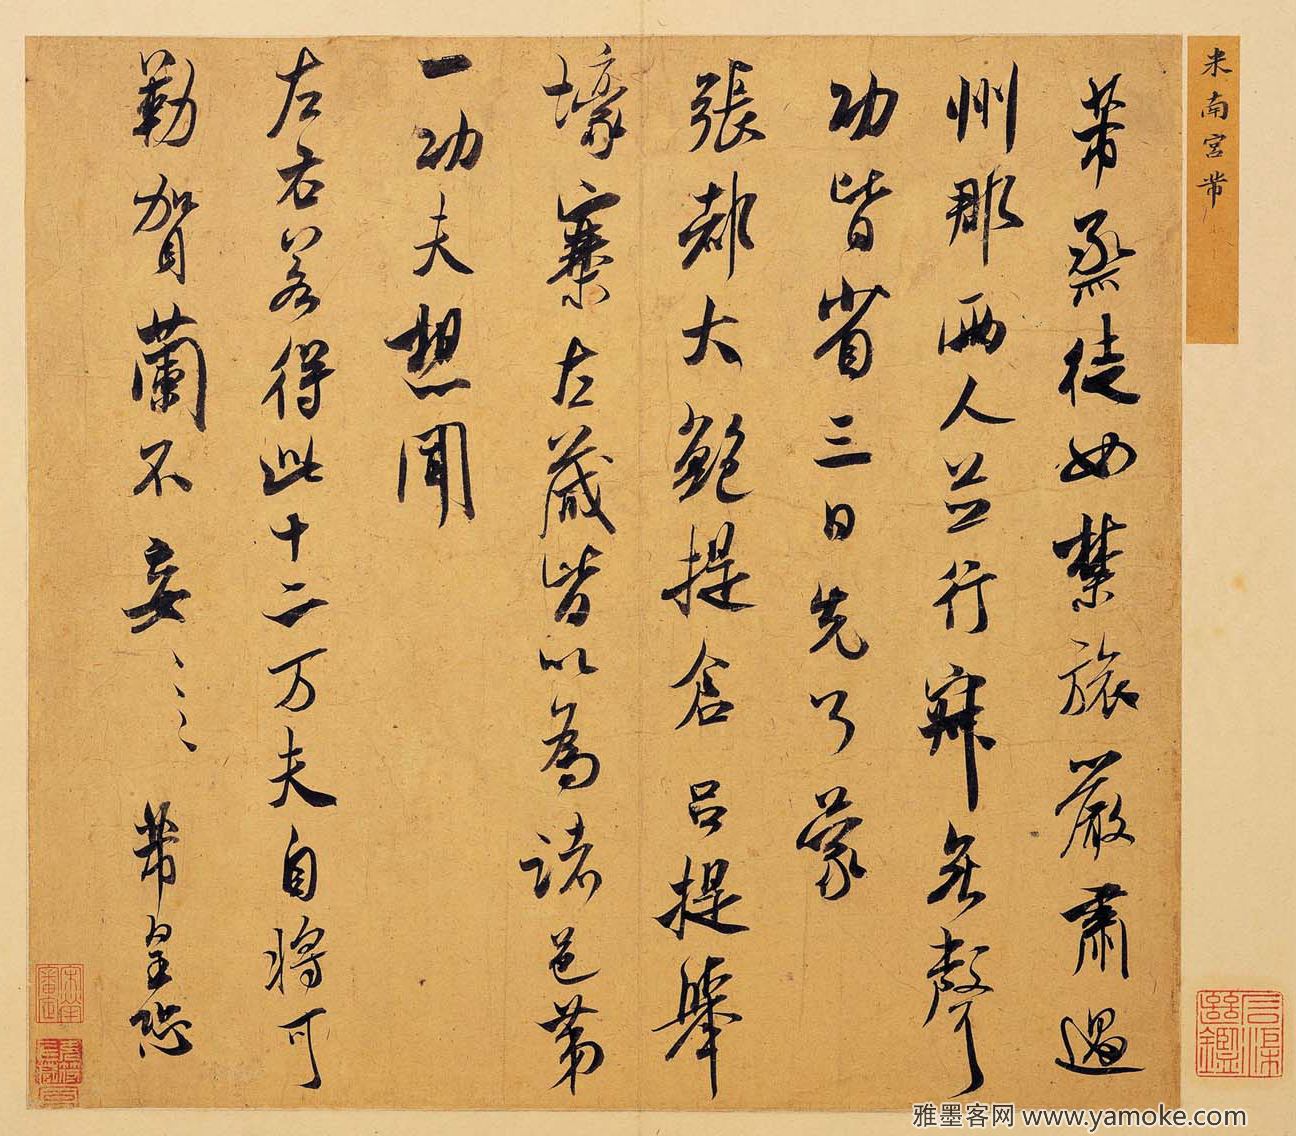 米南宮帖
芾烝徒如禁旅嚴肅過
州郡兩人並行寂無聲
功皆省三日先了蒙
張都大鮑提倉呂提舉
壕寨左藏皆以為諸邑第
一功夫想聞
左右若得此十二万夫自將可
勒賀蘭不妄〻〻芾皇恐
雅墨客网 www.yamoke.com